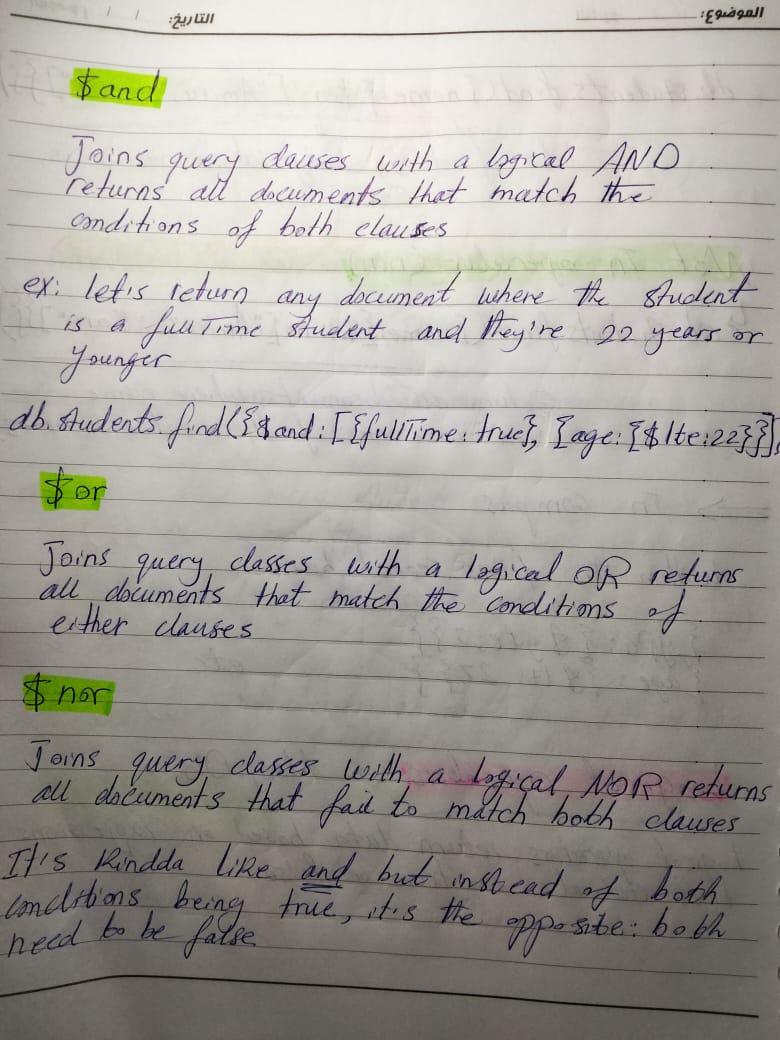 الموضوع:
التاريخ: / /
$and
Joins query clauses with a logical AND
returns all documents that match the
conditions of both clauses
ex: let's return any document where the student
is a fullTime student and they're 22 years or
younger
db.students.find({$and:[{fullTime:true}, {age:{$lte:22}}]
$or
Joins query classes with a logical OR returns
all documents that match the conditions of
either clauses
$nor
Joins query classes with a logical NOR returns
all documents that fail to match both clauses
It's Kindda like and but instead of both
conditions being true, it's the opposite: both
need to be false